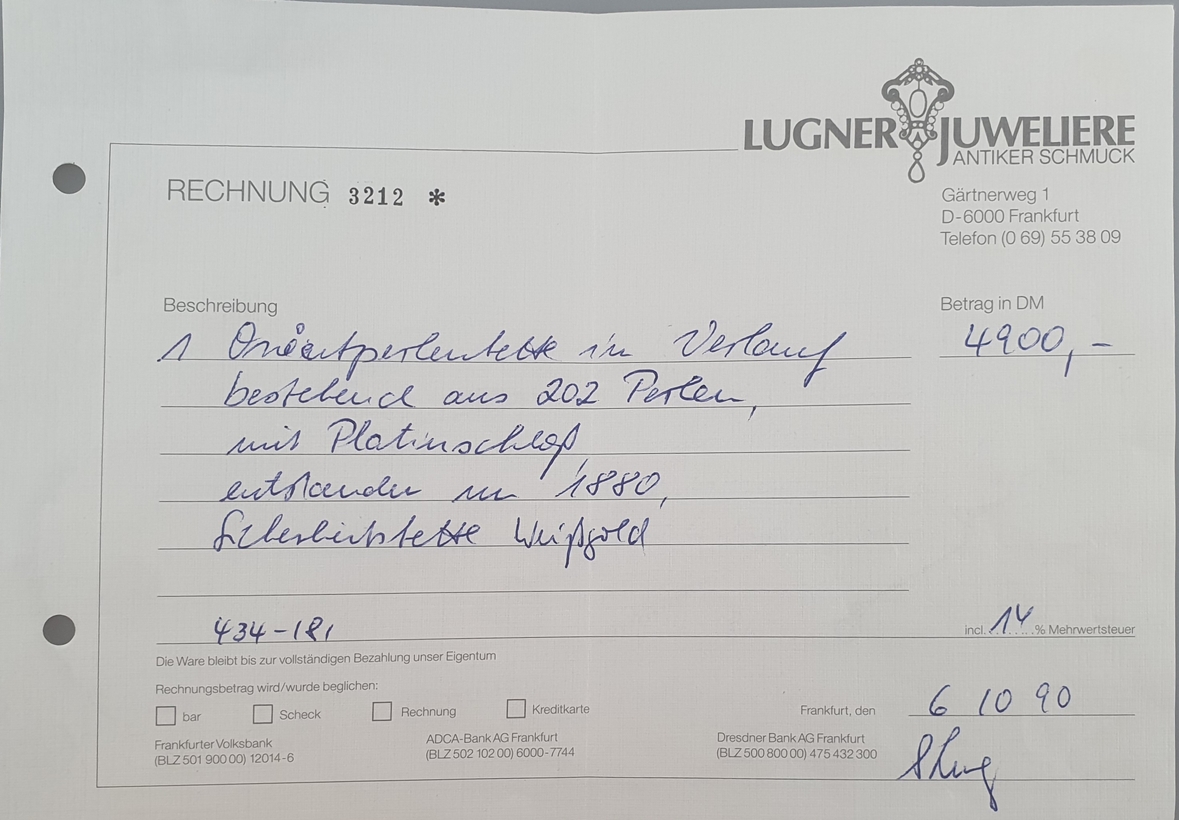 LUGNER JUWELIERE
ANTIKER SCHMUCK
RECHNUNG 3212 *
Gärtnerweg 1
D-6000 Frankfurt
Telefon (0 69) 55 38 09
Beschreibung
Betrag in DM
1 Orientperlenkette in Verlauf
4900,-
bestehend aus 202 Perlen,
mit Platinschloß,
entstanden um 1880,
Sicherheitskette Weißgold
434-181
incl. 14 % Mehrwertsteuer
Die Ware bleibt bis zur vollständigen Bezahlung unser Eigentum
Rechnungsbetrag wird/wurde beglichen:
bar
Scheck
Rechnung
Kreditkarte
Frankfurt, den 6 10 90
Frankfurter Volksbank
(BLZ 501 900 00) 12014-6
ADCA-Bank AG Frankfurt
(BLZ 502 102 00) 6000-7744
Dresdner Bank AG Frankfurt
(BLZ 500 800 00) 475 432 300